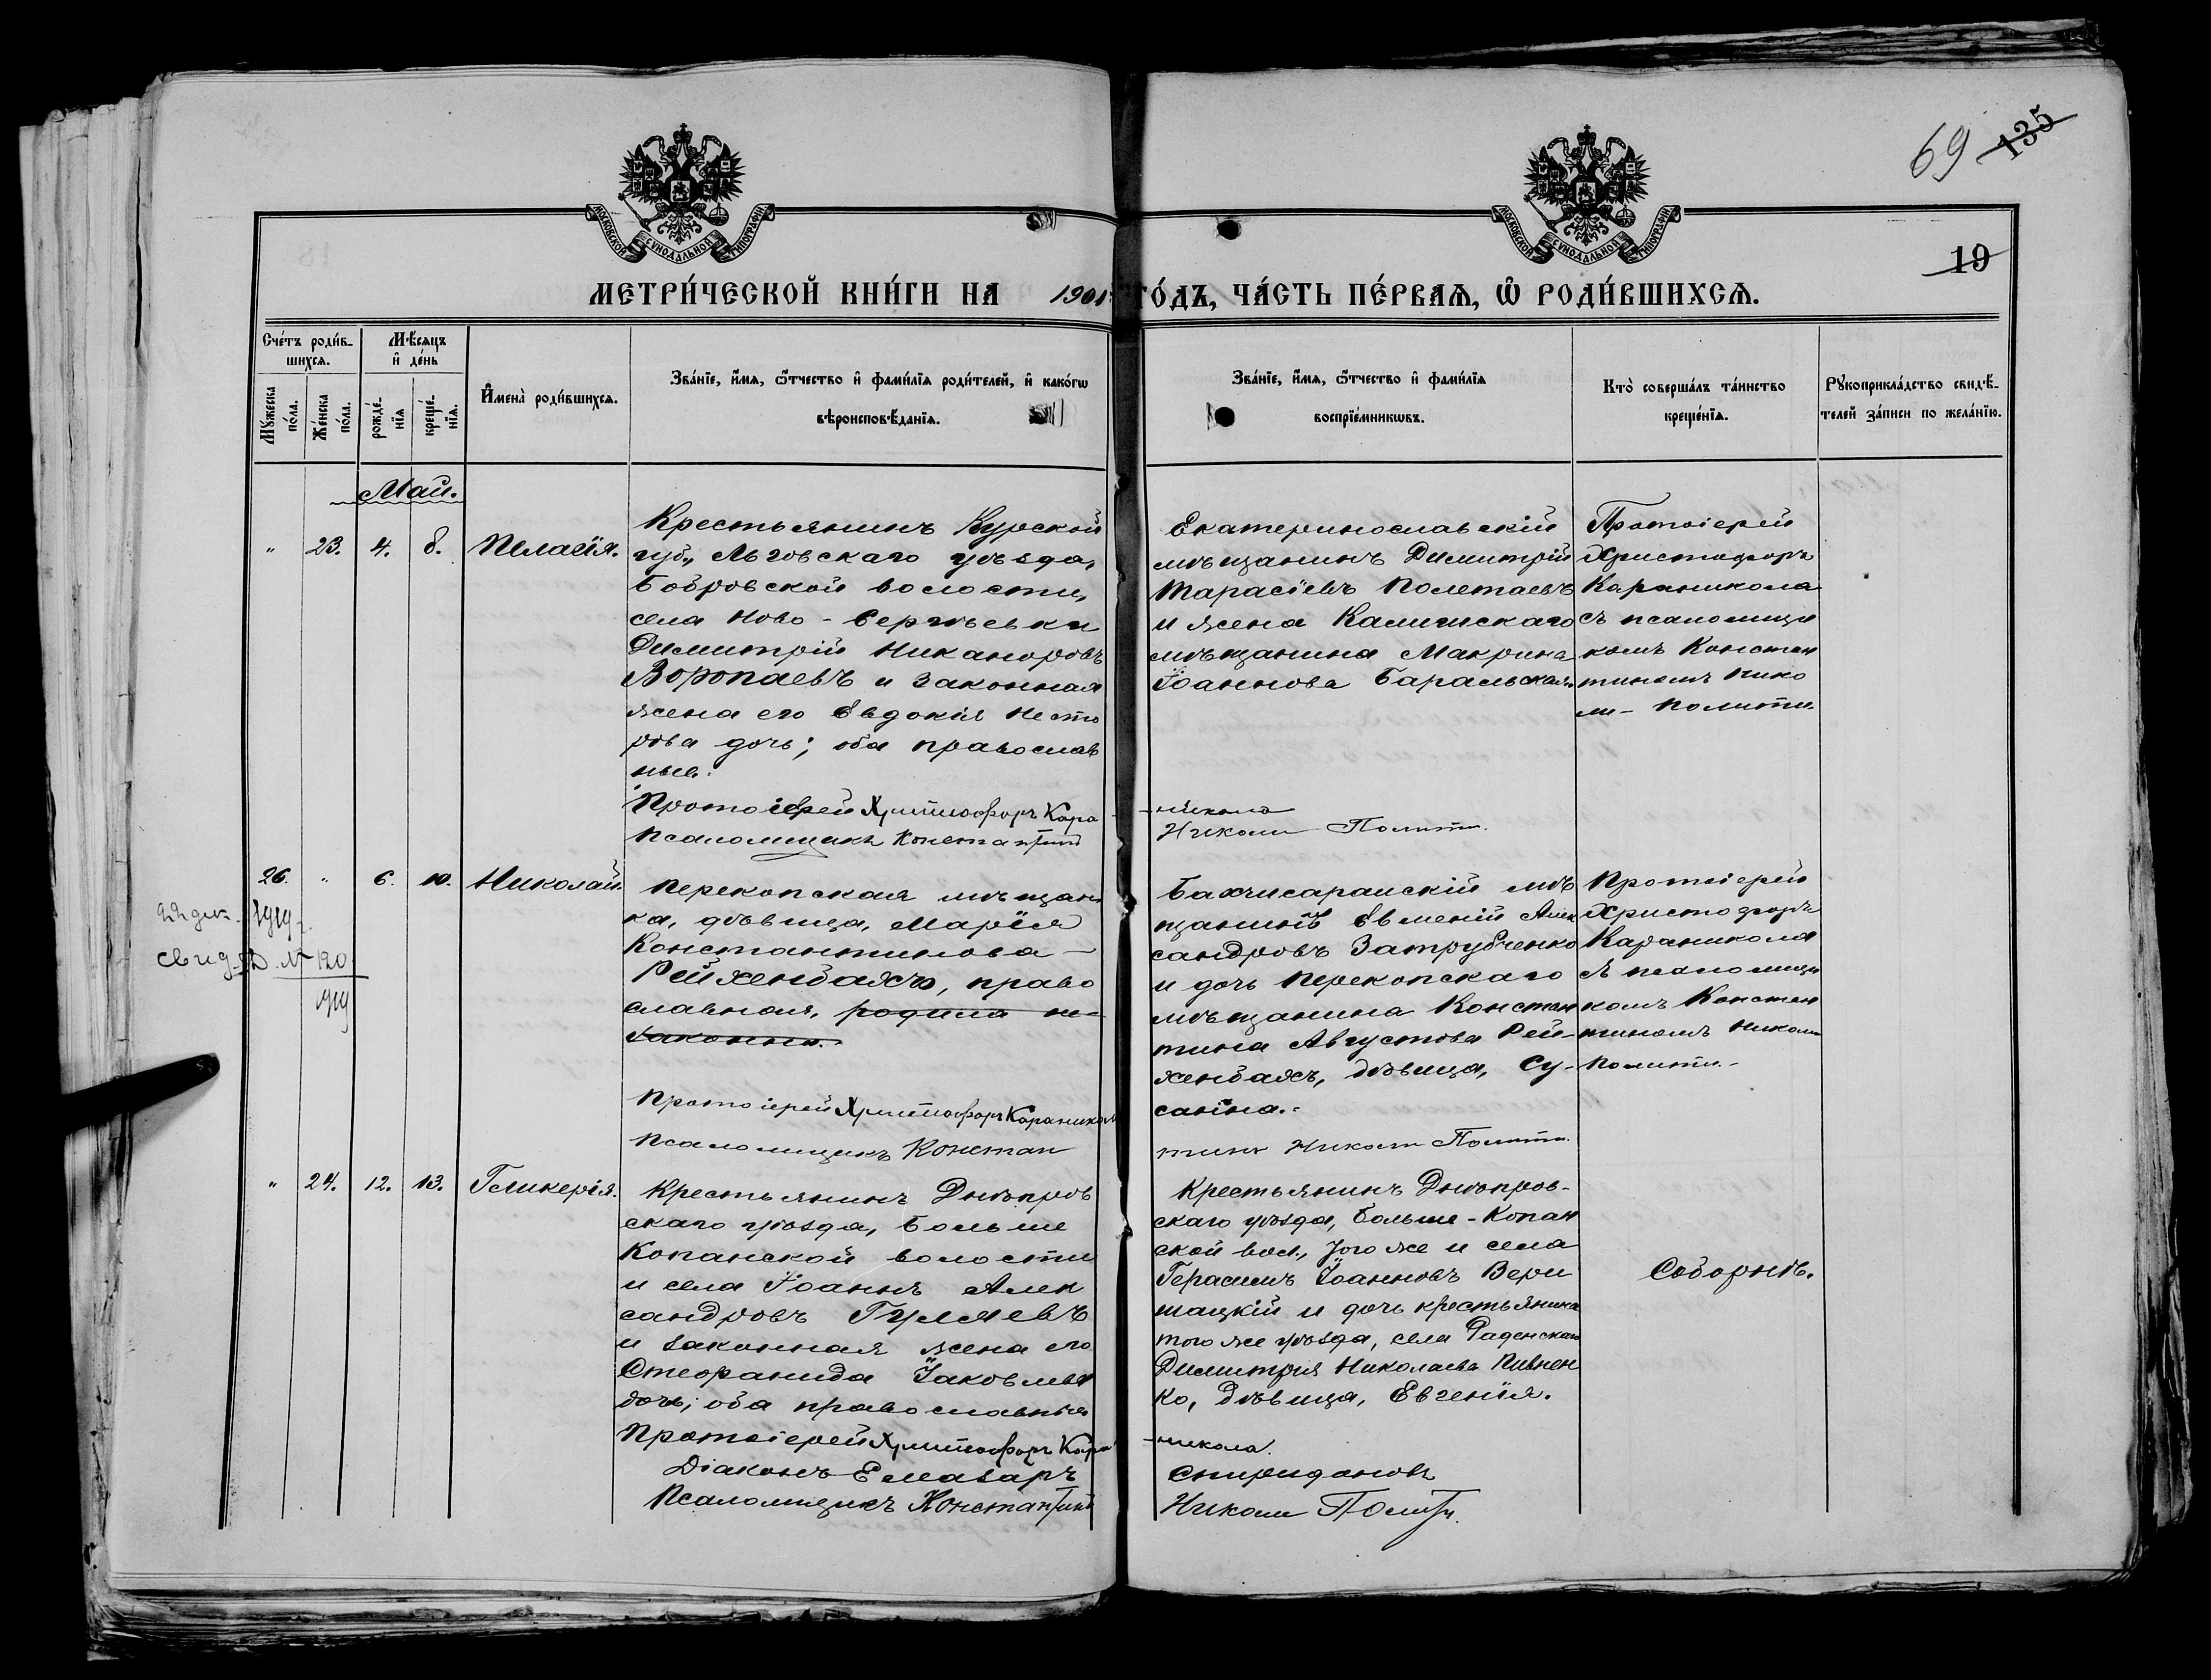 69 135
19
МОСКОВСКОЙ СУНОДАЛЬНОЙ ТИПОГРАФІИ
МОСКОВСКОЙ СУНОДАЛЬНОЙ ТИПОГРАФІИ
МЕТРИ́ЧЕСКОЙ КНИ́ГИ НА 1901 ГО́ДЪ, ЧА́СТЬ ПЕ́РВАѦ, Ѡ҆ РОДИ́ВШИХСѦ.
Сче́тъ роди́в-
шихсѧ.
Мꙋ́жеска по́ла.
Же́нска по́ла.
Мѣ́сѧцъ и҆ де́нь
рожде́-
нїѧ
креще́-
нїѧ.
И҆мена̀ роди́вшихсѧ.
Зва́нїе, и҆́мѧ, ѻ҆́тчество и҆ фами́лїѧ роди́телей, и҆ како́гѡ
вѣроисповѣ́данїѧ.
Зва́нїе, и҆́мѧ, ѻ҆́тчество и҆ фами́лїѧ
воспрїе́мникѡвъ.
Кто̀ соверша́лъ та́инство
креще́нїѧ.
Рꙋкоприкла́дство свидѣ́-
телей за́писи по жела́нїю.
Май.
" 23. 4. 8. Пелагія.
Крестьянинъ Курской
губ., Льговскаго уѣзда,
Бобровской волости,
села Ново-Сергѣевки
Димитрій Никаноровъ
Воропаевъ и законная
жена его Евдокія Несто
рова дочь; оба православ
ные.
Протоіерей Христофоръ Кара
Псаломщикъ Константинъ
Екатеринославскій
мѣщанинъ Димитрій
Тарасіевъ Полетаевъ
и жена Калишскаго
мѣщанина Макрина
Іоаннова Баральская.
-никола
Николи Полити.
Протоіерей
Христофоръ
Караникола
съ псаломщи
комъ Констан
тиномъ Нико
ли-Полити.
26. " 6. 10. Николай.
22 дек. 1919 г.
свид-во № 120
1919
Перекопская мѣщан
ка, дѣвица, Марія
Константинова -
Рейхенбахъ, право
славная, родила не-
законно.
Протоіерей Христофоръ Караникола
Псаломщикъ Констан
Бахчисарайскій мѣ
щанинъ Евменій Алек
сандровъ Затрубченко
и дочь Перекопскаго
мѣщанина Констан
тина Августова Рей-
хенбахъ, дѣвица, Су-
санна.
тинъ Николи Полити.
Протоіерей
Христофоръ
Караникола
съ псаломщи
комъ Констан
тиномъ Николи
Полити.-
" 24. 12. 13. Гликерія.
Крестьянинъ Днѣпров
скаго уѣзда, Больше
Копанской волости
и села Іоаннъ Алек
сандровъ Гуляевъ
и законная жена его
Стефанида Іаковлева
дочь; оба православные
Протоіерей Христофоръ Кара
Діаконъ Елеазаръ
Псаломщикъ Константинъ
Крестьянинъ Днѣпров-
скаго уѣзда, Больше-Копан
ской вол., того же и села
Герасимъ Іоанновъ Вери
мацкій и дочь крестьянина
того же уѣзда, села Раденскаго
Димитрія Николаева Пивнен
ко, дѣвица, Евгенія.
-никола.
Спиридоновъ
Николи Полити.
Соборнѣ.